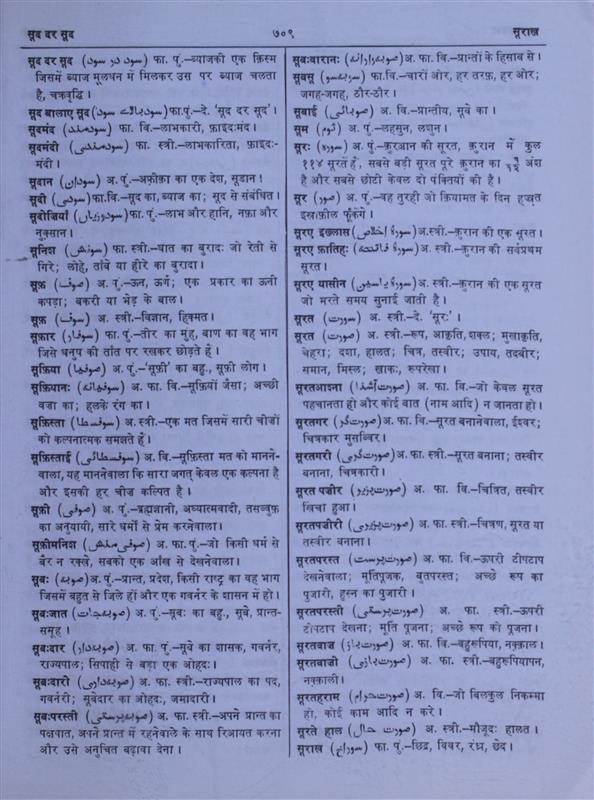 सूद दर सूद
७०९
सूराख़
सूद दर सूद (سود در سود) फा. पुं.–ब्याजकी एक क़िस्म
जिसमें ब्याज मूलधन में मिलकर उस पर ब्याज चलता
है, चक्रवृद्धि ।
सूद बालाए सूद (سود بالاے سود) फा.पुं.–दे. 'सूद दर सूद'।
सूदमंद (سودمند) फा. वि.–लाभकारी, फ़ाइदःमंद।
सूदमंदी (سودمندی) फा. स्त्री.–लाभकारिता, फ़ाइदः-
मंदी ।
सूदान (سودان) अ. पुं.–अफ़्रीक़ा का एक देश, सूडान !
सूदी (سودی) फा.वि.–सूद का, ब्याज का; सूद से संबंधित ।
सूदोज़ियाँ (سودوزیاں) फा. पुं.–लाभ और हानि, नफ़ा और
नुक़्सान ।
सूनिश (سونش) फा. स्त्री.–धात का बुरादः जो रेती से
गिरे; लोहे, तांबे या हीरे का बुरादा ।
सूफ़ (صوف) अ. पुं.–ऊन, ऊर्ण; एक प्रकार का ऊनी
कपड़ा; बकरी या भेड़ के बाल ।
सूफ़ (سوف) अ. स्त्री.–विज्ञान, हिक्मत ।
सूफ़ार (سوفار) फा. पुं.–तीर का मुंह, बाण का वह भाग
जिसे धनुष की तांत पर रखकर छोड़ते हैं ।
सूफ़िया (صوفیا) अ. पुं.–'सूफ़ी' का बहु., सूफ़ी लोग ।
सूफ़ियानः (صوفیانہ) अ. फा. वि.–सूफ़ियों जैसा; अच्छी
वज़ा का; हलके रंग का ।
सूफ़िस्ता (سوفسطا) अ. स्त्री.–एक मत जिसमें सारी चीजों
को कल्पनात्मक समझते हैं ।
सूफ़िस्ताई (سوفسطائی) अ. वि.–सूफ़िस्ता मत को मानने-
वाला, यह माननेवाला कि सारा जगत् केवल एक कल्पना है
और इसकी हर चीज कल्पित है ।
सूफ़ी (صوفی) अ. पुं.–ब्रह्मज्ञानी, अध्यात्मवादी, तसव्वुफ़
का अनुयायी, सारे धर्मों से प्रेम करनेवाला ।
सूफ़ीमनिश (صوفی منش) अ. फा.पुं.–जो किसी धर्म से
बैर न रक्खे, सबको एक आँख से देखनेवाला ।
सूबः (صوبہ) अ. पुं.–प्रान्त, प्रदेश, किसी राष्ट्र का वह भाग
जिसमें बहुत से जिले हों और एक गवर्नर के शासन में हो ।
सूबःजात (صوبہ جات) अ. पुं.–सूबः का बहु., सूबे, प्रान्त-
समूह ।
सूबःदार (صوبہ دار) अ. फा. पुं.–सूबे का शासक, गवर्नर,
राज्यपाल; सिपाही से बड़ा एक ओहदः ।
सूबःदारी (صوبہ داری) अ. फा. स्त्री.–राज्यपाल का पद,
गवर्नरी; सूबेदार का ओहदः, जमादारी ।
सूबःपरस्ती (صوبہ پرستی) अ. फा. स्त्री.–अपने प्रान्त का
पक्षपात, अपने प्रान्त में रहनेवाले के साथ रिआयत करना
और उसे अनुचित बढ़ावा देना ।
सूबःवारानः (صوبہ وارانہ) अ. फा. वि.–प्रान्तों के हिसाब से ।
सूबसू (سو بہ سو) फा.वि.–चारों ओर, हर तरफ़, हर ओर;
जगह-जगह, ठौर-ठौर ।
सूबाई (صوبائی) अ. वि.–प्रान्तीय, सूबे का ।
सूम (ثوم) अ. पुं.–लहसुन, लशुन ।
सूरः (سورہ) अ. पुं.–क़ुरआन की सूरत, क़ुरान में कुल
११४ सूरतें हैं, सबसे बड़ी सूरत पूरे क़ुरान का अंश
है और सबसे छोटी केवल दो पंक्तियों की है ।
सूर (صور) अ. पुं.–वह तुरही जो क़ियामत के दिन हज़्रत
इस्राफ़ील फूंकेंगे ।
सूरए इख़्लास (سورۂ اخلاص) अ.स्त्री.–क़ुरान की एक सूरत ।
सूरए फ़ातिहः (سورۂ فاتحہ) अ.स्त्री.–क़ुरान की सर्वप्रथम
सूरत ।
सूरए यासीन (سورۂ یاسین) अ. स्त्री.–क़ुरान की एक सूरत
जो मरते समय सुनाई जाती है ।
सूरत (سورت) अ. स्त्री.–दे. 'सूरः' ।
सूरत (صورت) अ. स्त्री.–रूप, आकृति, शक्ल; मुखाकृति,
चेहरा; दशा, हालत; चित्र, तस्वीर; उपाय, तदबीर;
समान, मिस्ल; खाकः, रूपरेखा ।
सूरतआश्ना (صورت آشنا) अ. फा. वि.–जो केवल सूरत
पहचानता हो और कोई बात (नाम आदि) न जानता हो ।
सूरतगर (صورت گر) अ. फा. वि.–सूरत बनानेवाला, ईश्वर;
चित्रकार मुसव्विर ।
सूरतगरी (صورت گری) अ. फा. स्त्री.–सूरत बनाना; तस्वीर
बनाना, चित्रकारी ।
सूरत पज़ीर (صورت پذیر) अ. फा. वि.–चित्रित, तस्वीर
खिंचा हुआ ।
सूरतपज़ीरी (صورت پذیری) अ. फा. स्त्री.–चित्रण, सूरत या
तस्वीर बनाना ।
सूरतपरस्त (صورت پرست) अ. फा. वि.–ऊपरी टीपटाप
देखनेवाला; मूर्तिपूजक, बुतपरस्त; अच्छे रूप का
पुजारी, हुस्न का पुजारी ।
सूरतपरस्ती (صورت پرستی) अ. फा. स्त्री.–ऊपरी
टीपटाप देखना; मूर्ति पूजना; अच्छे रूप को पूजना ।
सूरतबाज़ (صورت باز) अ. फा. वि.–बहुरूपिया, नक़्क़ाल ।
सूरतबाज़ी (صورت بازی) अ. फा. स्त्री.–बहुरूपियापन,
नक़्क़ाली ।
सूरतहराम (صورت حرام) अ. वि.–जो बिलकुल निकम्मा
हो, कोई काम आदि न करे ।
सूरते हाल (صورت حال) अ. स्त्री.–मौजूदः हालत ।
सूराख़ (سوراخ) फा. पुं.–छिद्र, विवर, रंध्र, छेद ।